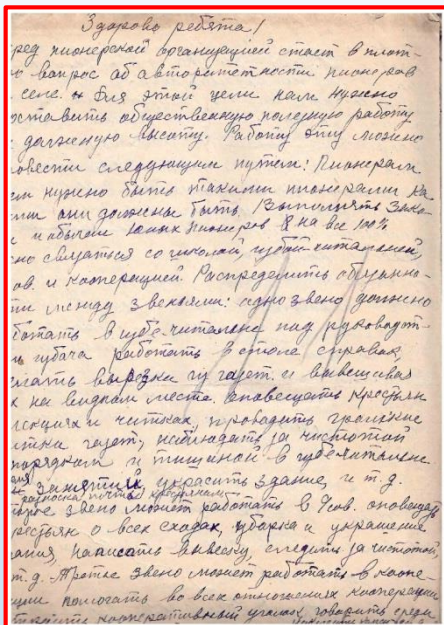 Здорово ребята!
ред пионерской организацией стает в плот-
вопрос об авторитетности пионеров
селе. и Для этой цели нам нужно
оставить общественную полезную работу
должную высоту. Работу эту можно
овести следующим путем: Пионерам
ем нужно быть такими пионерами ка
они должны быть. Выполнять Зако
и обычаи Юных Пионеров на все 100%
но связаться со школой, избой-читальней,
ов. и Кооперацией. Распределить обязанно-
ти между звеньями: одно звено должно
ботать в избе-читальне под руководст-
избача работать в столе справок,
елать вырезки из газет. и вывешивая
х на видном месте. оповещать крестьян
лекциях и читках, проводить громкие
итки газет, наблюдать за чистотой
порядком и тишиной в избе-читальне
занятий, украсить здание, и т.д.
разноска почты крестьянам
торое звено может работать в Усов. оповещая
рестьян о всех сходах, уборка и украшение
ания, написать вывеску, следить за чистотой,
т.д. Третье звено может работать в коопе-
ции помогать во всех отношениях кооперации
кооперативный уголок, говорить среди